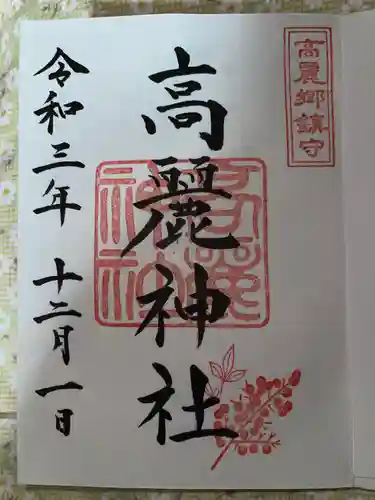 高麗郷鎮守
高麗神社
令和三年 十二月一日